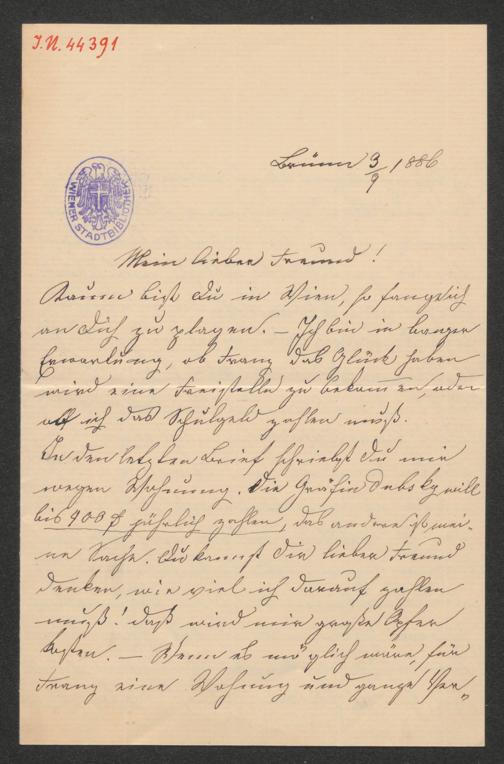 I.N. 44391
WIENER STADTBIBLIOTHEK
Brünn 3/9 1886
Mein lieber Freund!
Kaum bist du in Wien, so fange ich
an dich zu plagen. – Ich bin in banger
Erwartung, ob Franz das Glück haben
wird eine Freistelle zu bekommen, oder
ob ich das Schulgeld zahlen muß.
In den letzten Brief schriebst du mir
wegen Wohnung. Die Gräfin Dubsky will
bis 900 f jährlich zahlen, das andere ist mei-
ne Sache. Du kannst dir lieber Freund
denken, wie viel ich darauf zahlen
muß! daß wird mir große Opfer
kosten. – Wenn es möglich wäre, für
Franz eine Wohnung und ganze Ver-